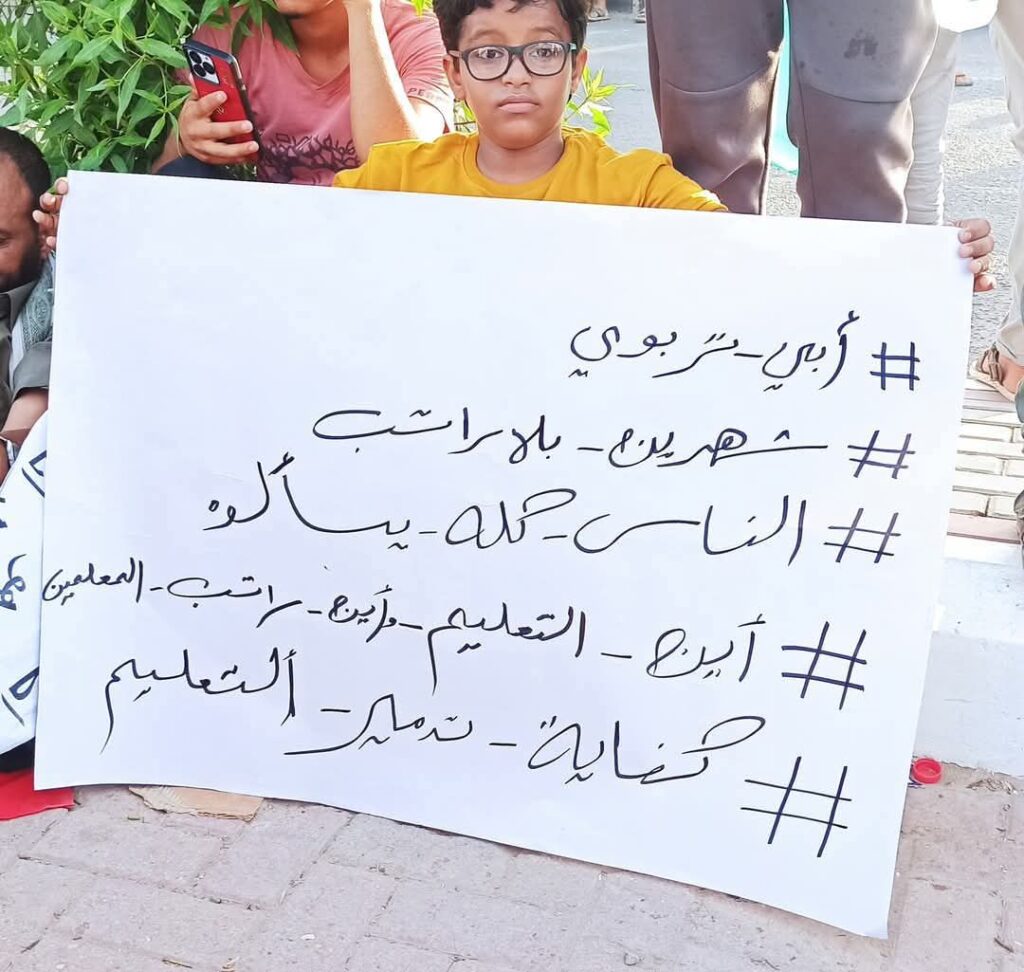 # أبي-تربوي
# شهرين-بلا راتب
# الناس-كله-يسألوه
# أين-التعليم-وأين-راتب-المعلمين
# كفاية-تدمير-ألتعليم